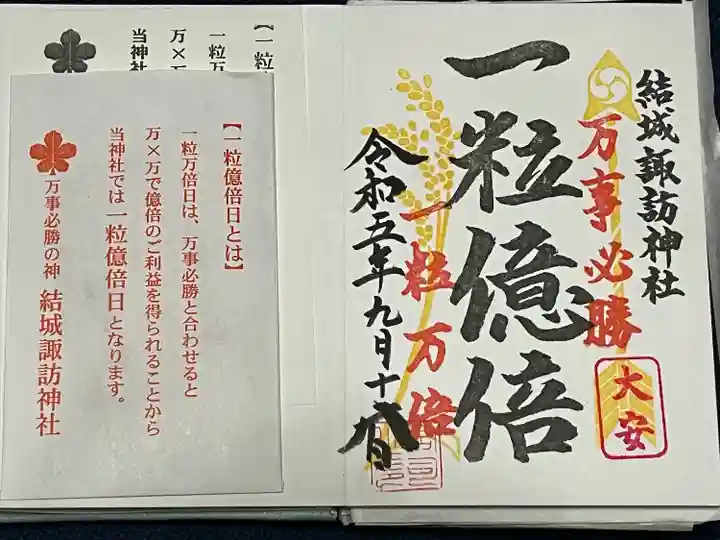 結城諏訪神社
万事必勝
大安
一粒億倍
一粒万倍
令和五年九月十八日
【一粒
一粒万
万×万
当神社
【一粒億倍日とは】
一粒万倍日は、万事必勝と合わせると
万×万で億倍のご利益を得られることから
当神社では一粒億倍日となります。
万事必勝の神 結城諏訪神社